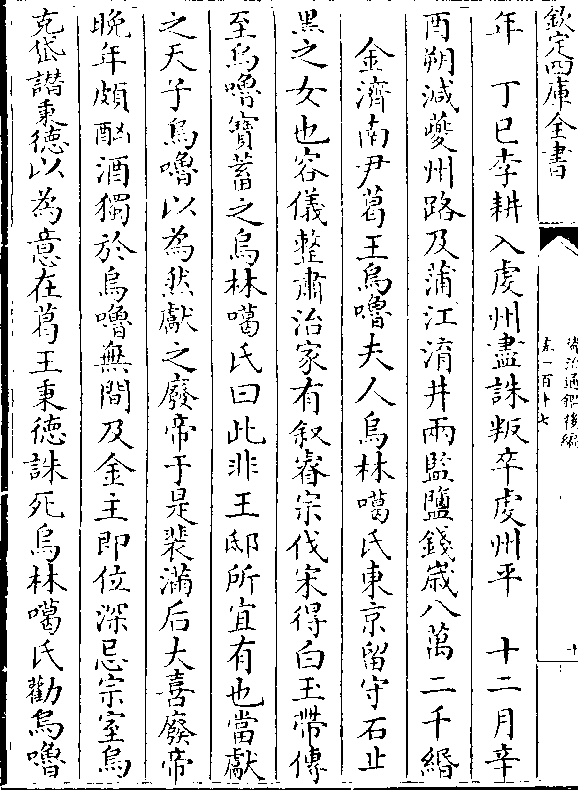 欽定四庫全書
資治通鑑後編
卷一百十七
年　丁巳李耕入虔州盡誅叛卒虔州平　十二月辛
酉朔減夔州路及蒲江淯井兩監鹽錢歲八萬二千緡
金濟南尹葛王烏嚕夫人烏林噶氏東京留守石止
黑之女也容儀整肅治家有叙睿宗伐宋得白玉帶傳
至烏嚕寶蓄之烏林噶氏曰此非王邸所宜有也當獻
之天子烏嚕以為然獻之廢帝于是裴滿后大喜廢帝
晩年頗酗酒獨於烏嚕無間及金主即位深忌宗室烏
克岱譖秉德以為意在葛王秉德誅死烏林噶氏勸烏嚕